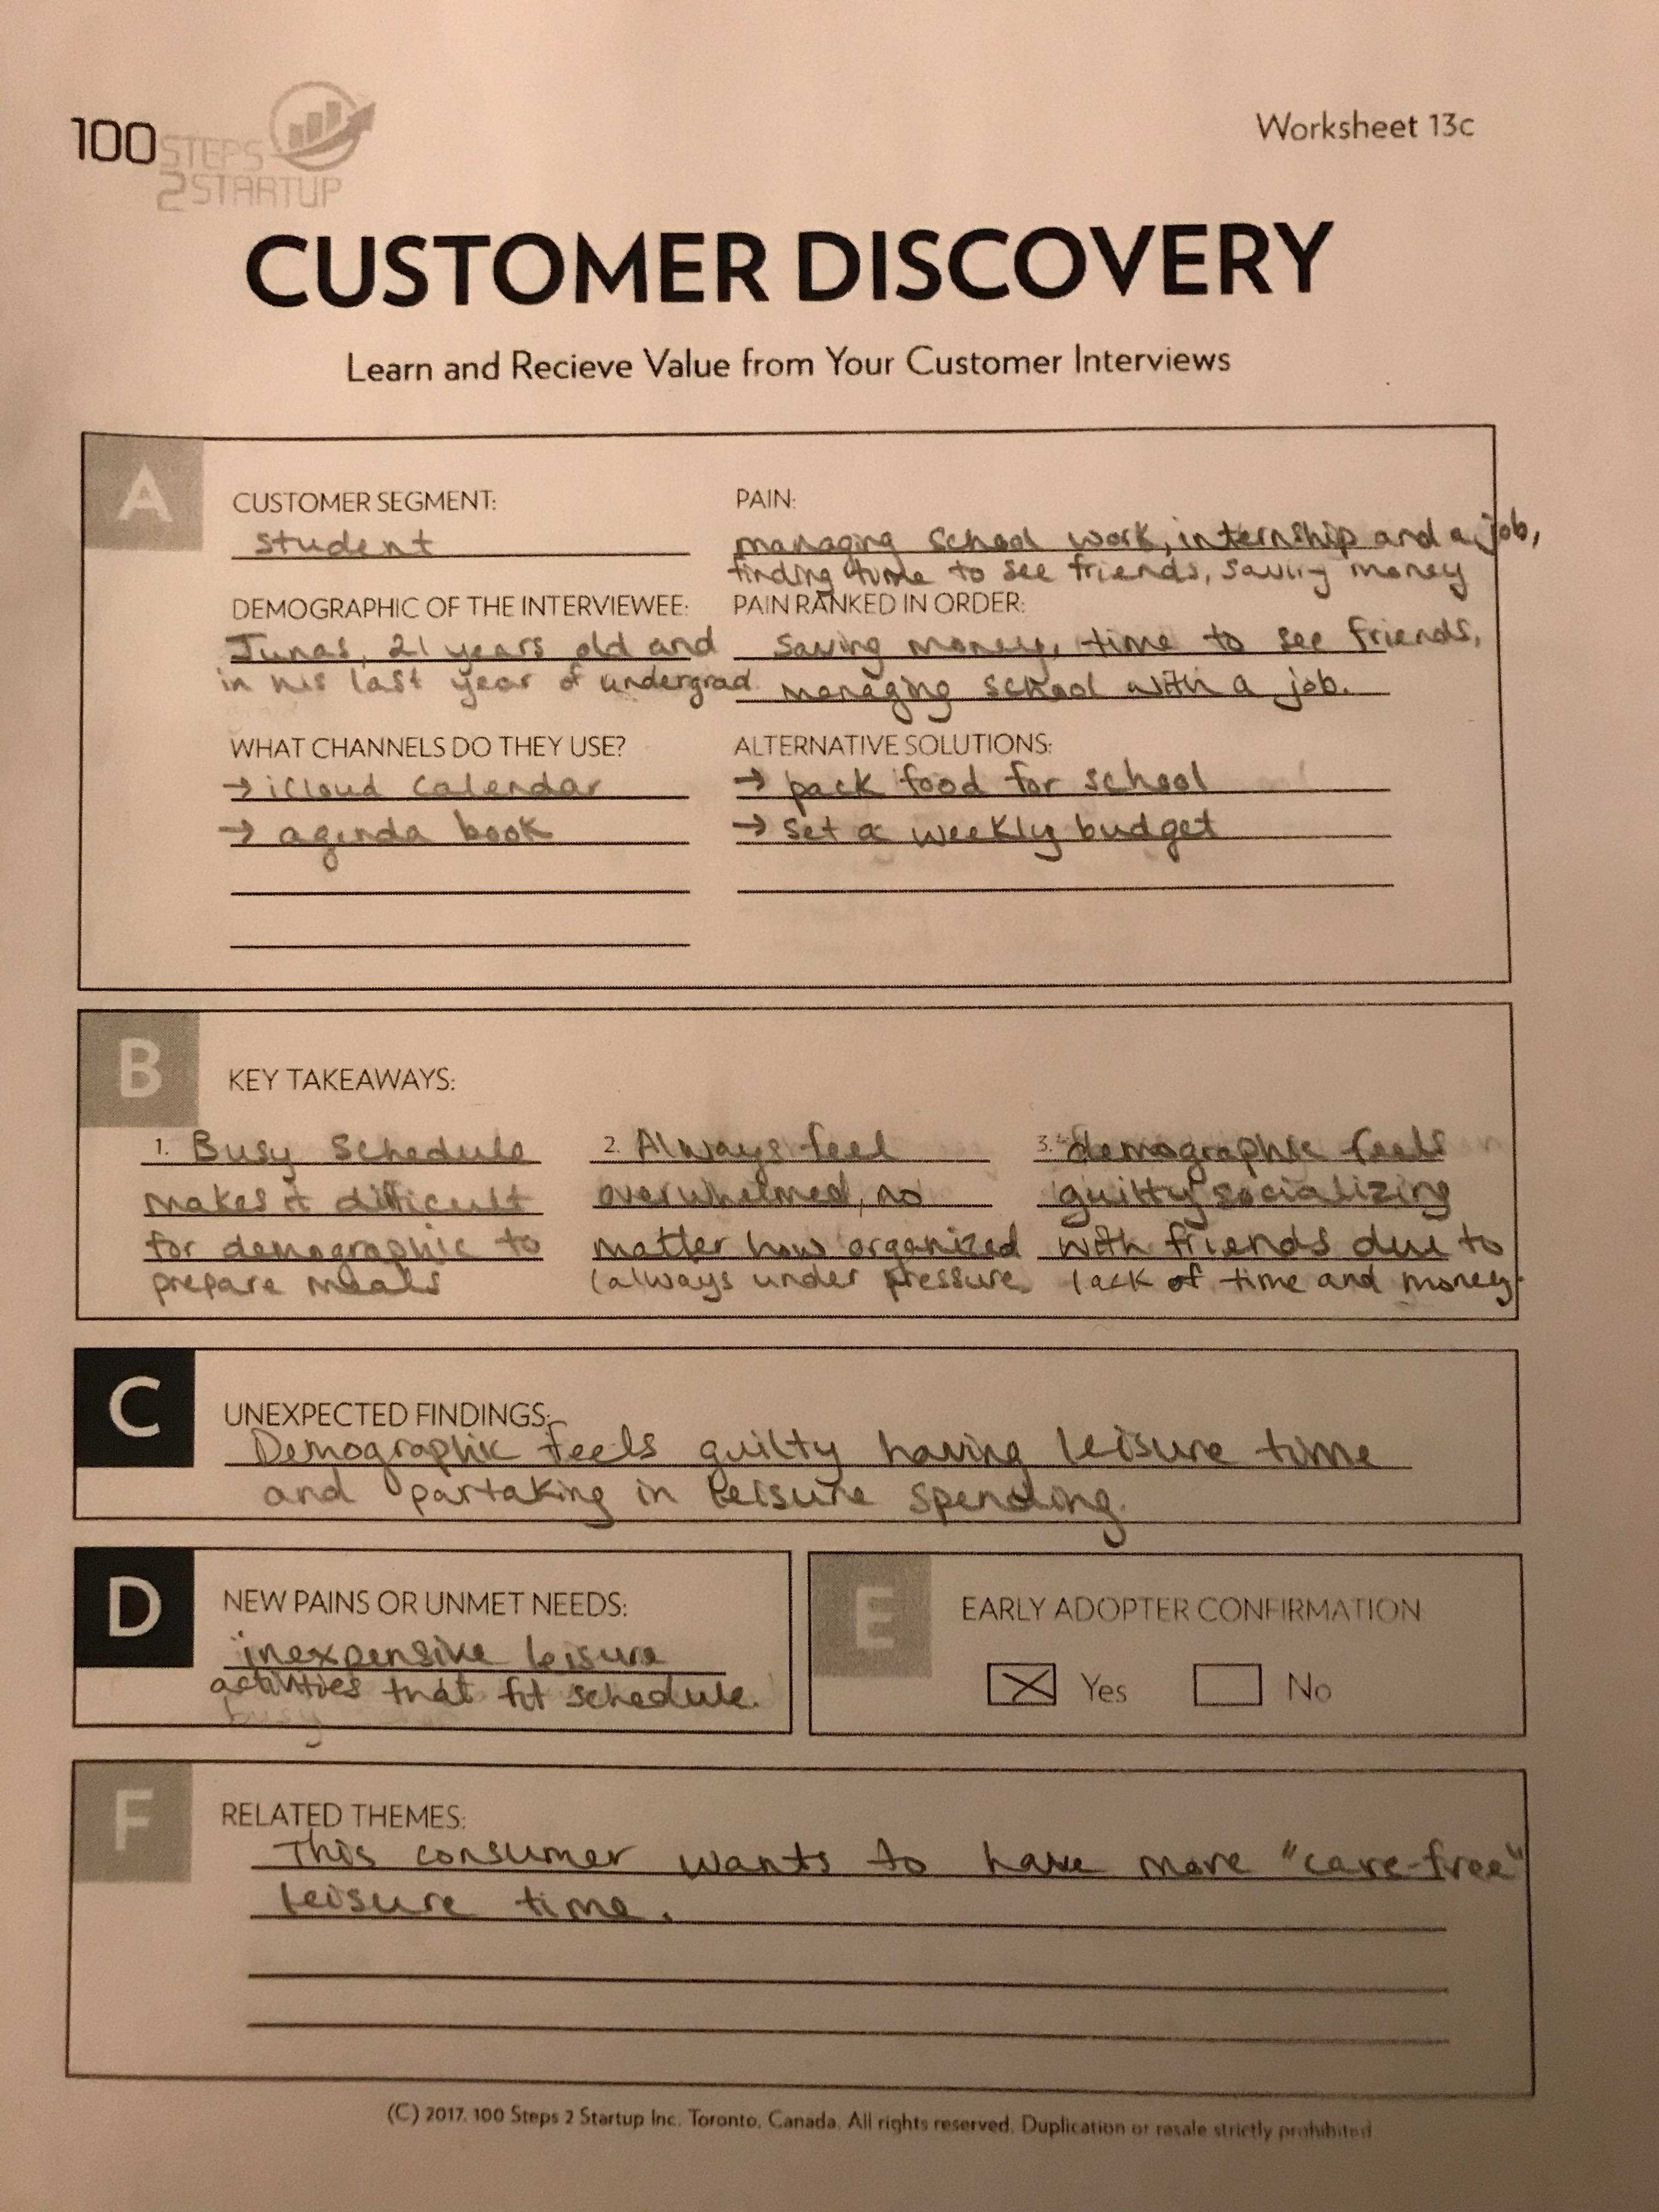 100 STEPS
2STARTUP
Worksheet 13c
CUSTOMER DISCOVERY
Learn and Recieve Value from Your Customer Interviews
A
CUSTOMER SEGMENT:
student
PAIN:
managing school work, internship and a job,
finding time to see friends, saving money
DEMOGRAPHIC OF THE INTERVIEWEE:
Junas, 21 years old and
in his last year of undergrad.
PAIN RANKED IN ORDER:
saving money, time to see friends,
managing school with a job.
WHAT CHANNELS DO THEY USE?
→ iCloud Calendar
→ agenda book
ALTERNATIVE SOLUTIONS:
→ pack food for school
→ set a weekly budget
B
KEY TAKEAWAYS:
1. Busy Schedule
makes it difficult
for demographic to
prepare meals
2. Always feel
overwhelmed, no
matter how organized
(always under pressure
3. demographic feels
guilty socializing
with friends due to
lack of time and money.
C
UNEXPECTED FINDINGS:
Demographic feels guilty having leisure time
and partaking in leisure spending.
D
NEW PAINS OR UNMET NEEDS:
inexpensive leisure
activities that fit schedule.
busy
E
EARLY ADOPTER CONFIRMATION
Yes No
F
RELATED THEMES:
This consumer wants to have more "care-free"
leisure time.
(C) 2017, 100 Steps 2 Startup Inc. Toronto, Canada. All rights reserved. Duplication or resale strictly prohibited